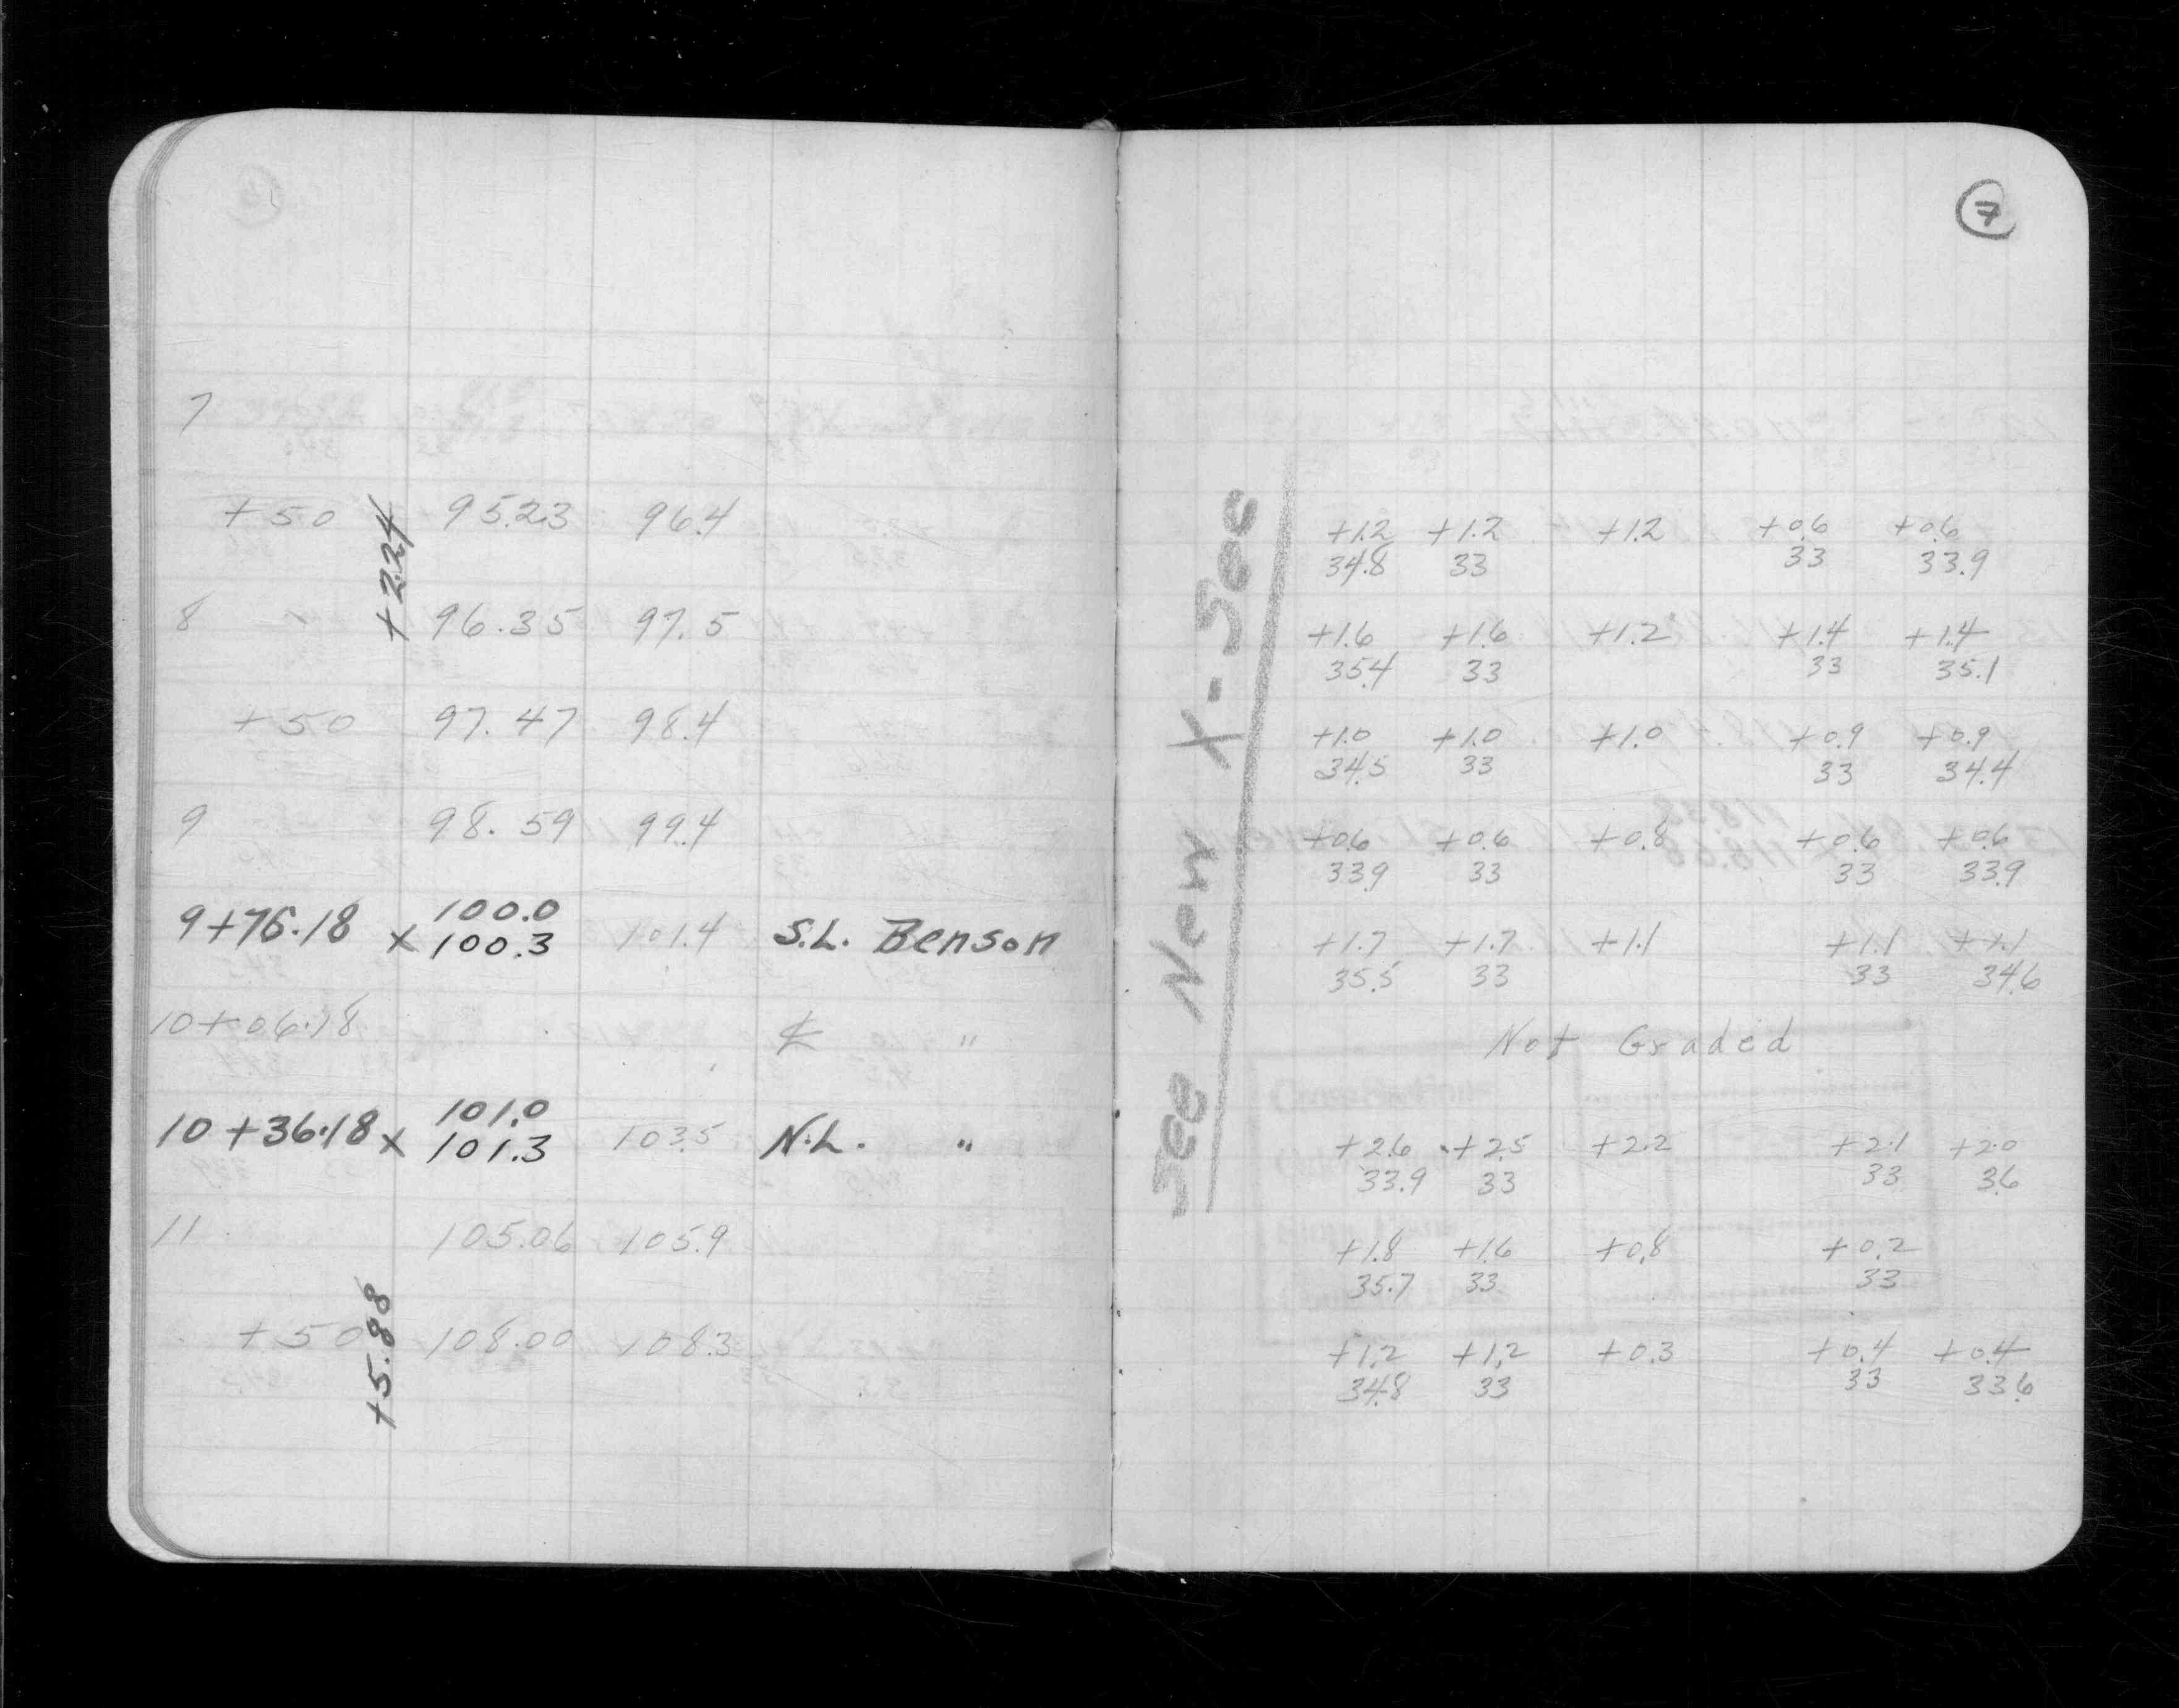 7
+50 95.23 96.4
+2.24
8 96.35 97.5
+50 97.47 98.4
9 98.59 99.4
100.0
9+76.18 x 100.3 101.4 S.L. Benson
10+06.18 ₵ "
101.0
10+36.18 x 101.3 103.5 N.L. "
11 105.06 105.9
+50 108.00 108.3
+5.88
7
See New X-Sec
+1.2 +1.2 +1.2 +0.6 +0.6
34.8 33 33 33.9
+1.6 +1.6 +1.2 +1.4 +1.4
35.4 33 33 35.1
+1.0 +1.0 +1.0 +0.9 +0.9
34.5 33 33 34.4
+0.6 +0.6 +0.8 +0.6 +0.6
33.9 33 33 33.9
+1.7 +1.7 +1.1 +1.1 +1.1
35.5 33 33 34.6
Not Graded
+2.6 +2.5 +2.2 +2.1 +2.0
33.9 33 33 36
+1.8 +1.6 +0.8 +0.2
35.7 33 33
+1.2 +1.2 +0.3 +0.4 +0.4
34.8 33 33 33.6